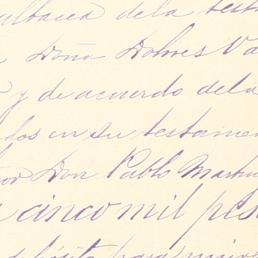 albacea de la testa
Doña Dolores Va
y de acuerdo de la
los en su testamen
or Don Pablo Mart
a cinco mil pes